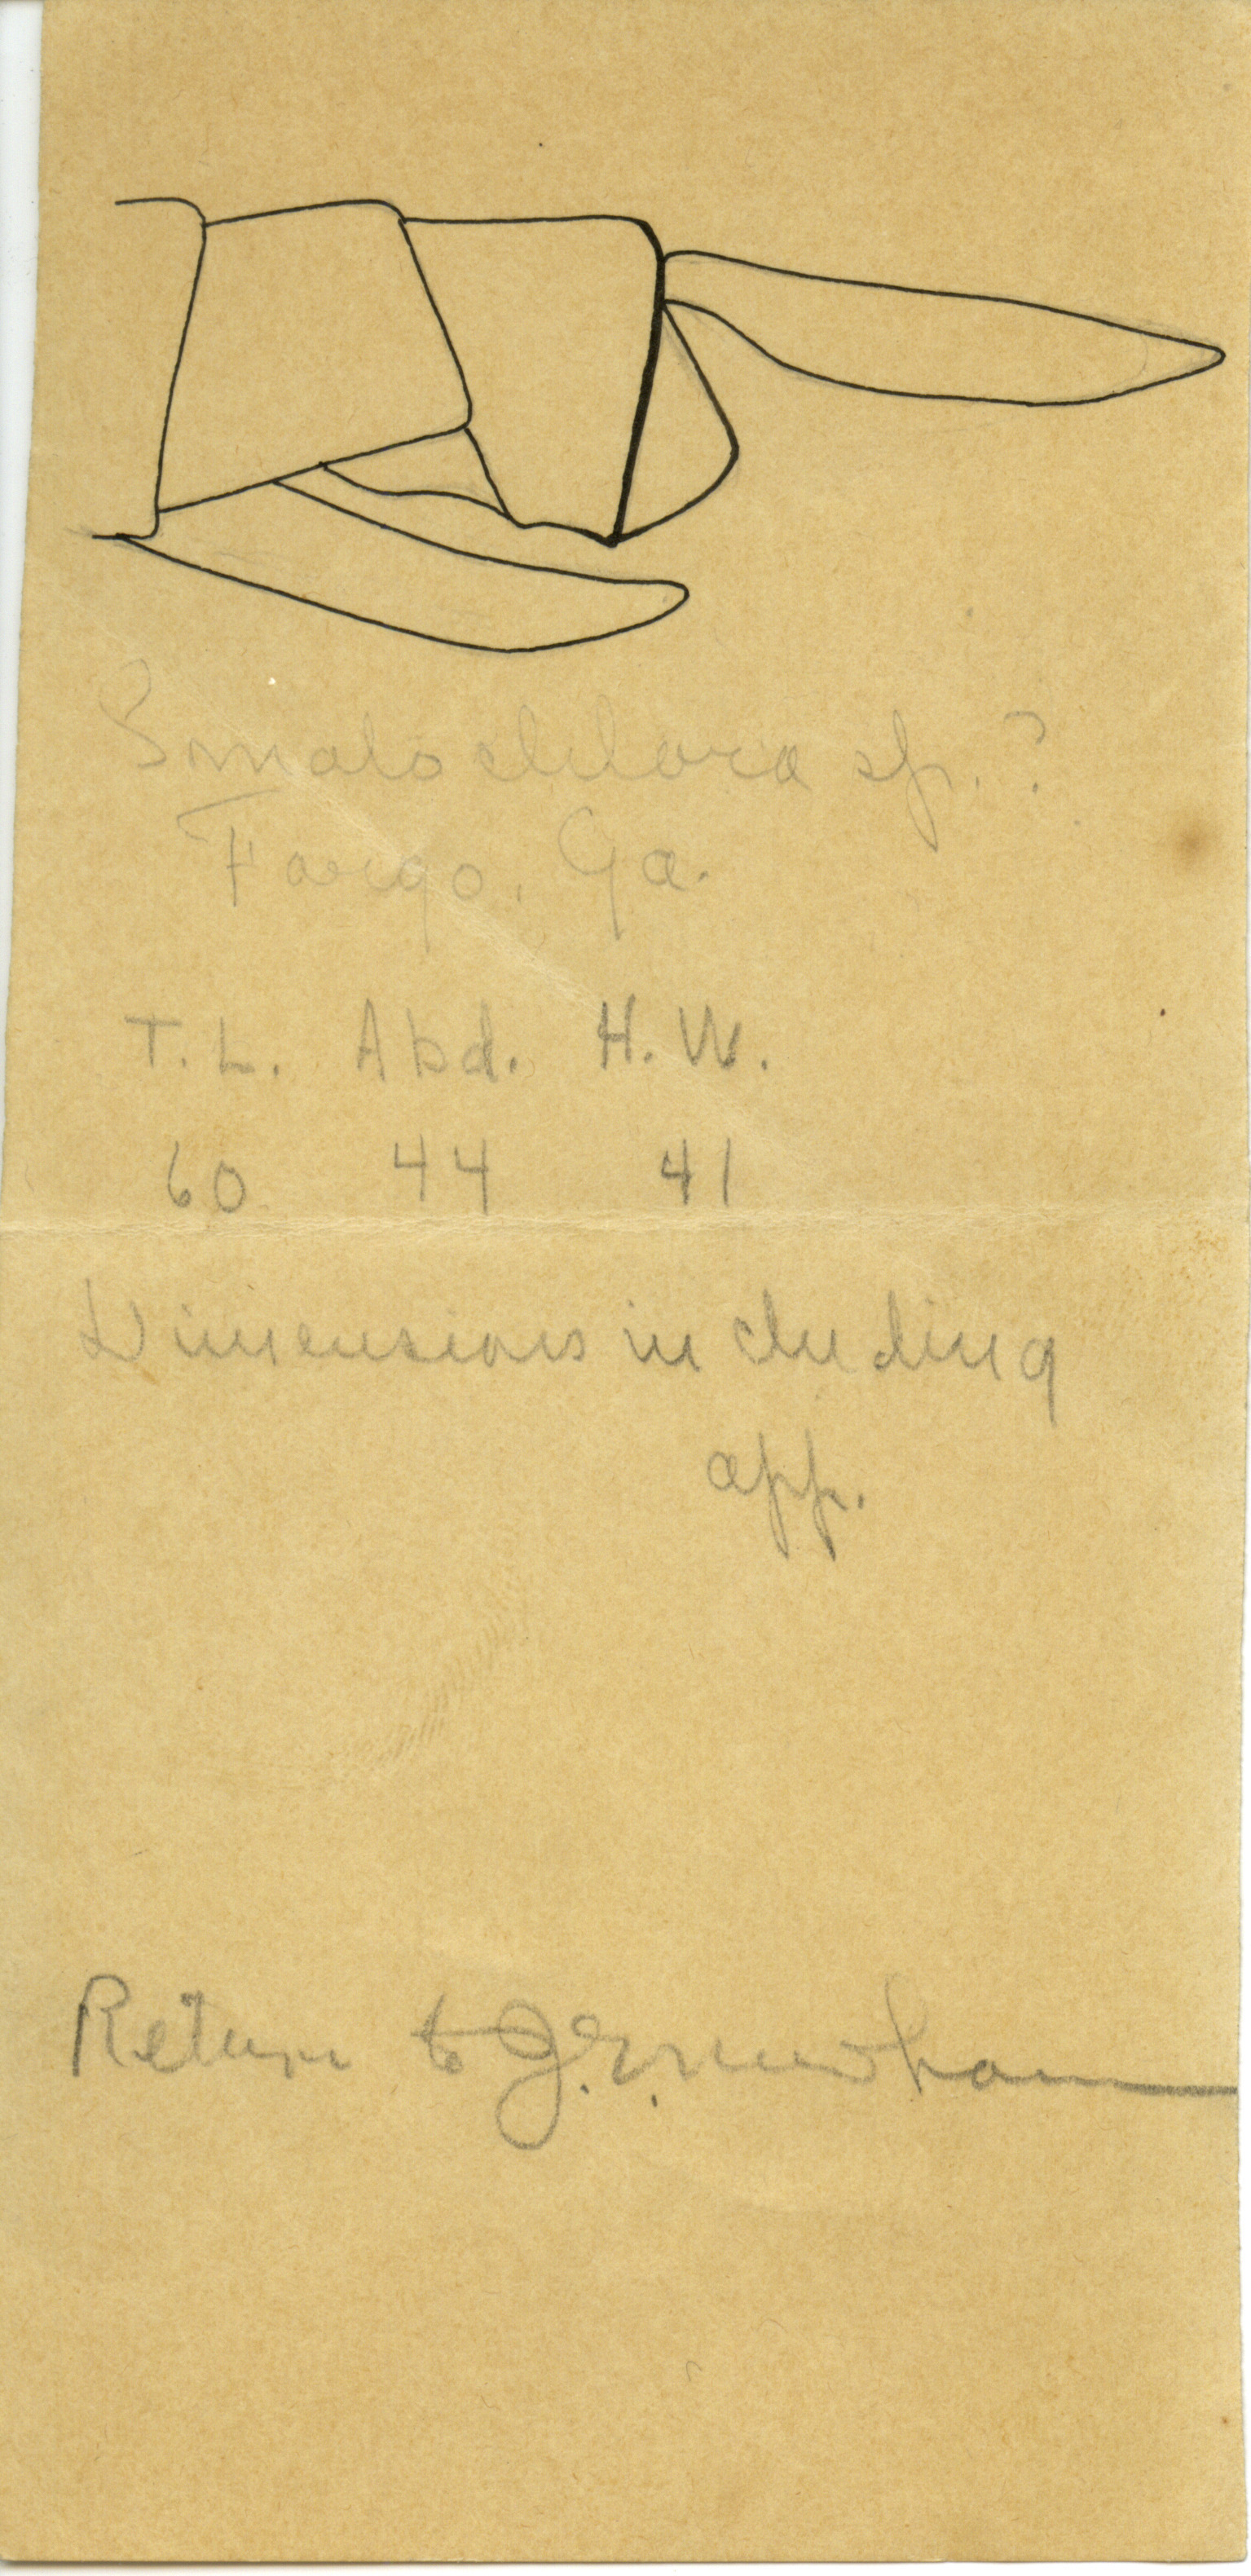 Somatochlora sp.?
Fargo, Ga.
T.L. Abd. H.W.
60 44 41
Dimensions including
app.
Return to J.G. Needham